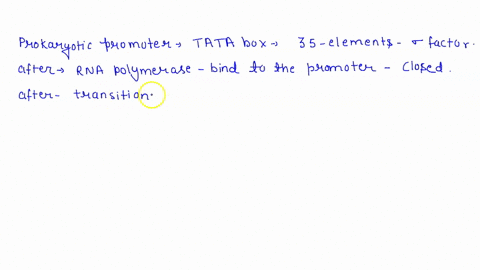 Prokaryotic promoter → TATA box → 35-elements - σ factor.
after → RNA polymerase - bind to the promoter - closed.
after - transition.